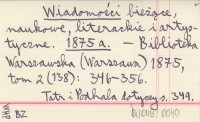 Wiadomości bieżące,
naukowe, literackie i artys-
tyczne. 1875 a. — Biblioteka
Warszawska (Warszawa) 1875,
tom 2 (138): 346-356.
Tatr i Podhala dotyczy s. 349.
BZ